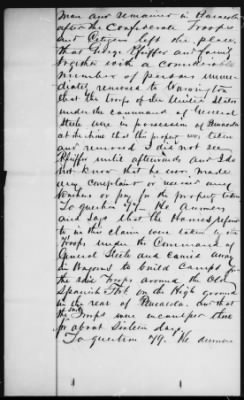 man and remained in Pensacola
after the Confederate Troops
and Citizens left the place,
that George Pfeiffer and family
together with a considerable
number of persons imme-
diately removed to Warrington
that the troops of the United States
under the command of General
Steele were in possession of Pensacola
at the time that the property was taken
and removed I did not see
Pfeiffer until afterwards and I do
not know that he ever made
any complaint or received any
vouchers or pay for the property taken
To question 47. He answers
and says that the Houses refered
to in this claim were taken by the
Troops under the Command of
General Steele and carried away
in Wagons to build Camps for
the said Troops around the Old
Spanish Fort on the High ground
in the rear of Pensacola, and that
the said Troops were incamped there
for about Sixteen days.
To question 49. He answers